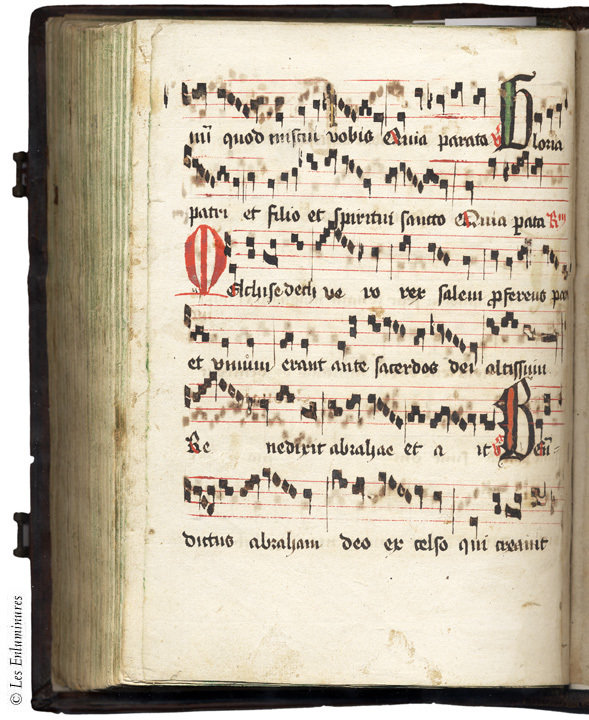 nū quod miscui vobis Quia parata ℣ Gloria
patri et filio et spiritui sancto Quia parata ℟
Melchisedech ve ro rex salem proferens pa
et vinum erant ante sacerdos dei altissimi
Be nedixit abrahae et a it ℣ Ben=
dictus abraham deo ex celso qui creavit
© Les Enluminures